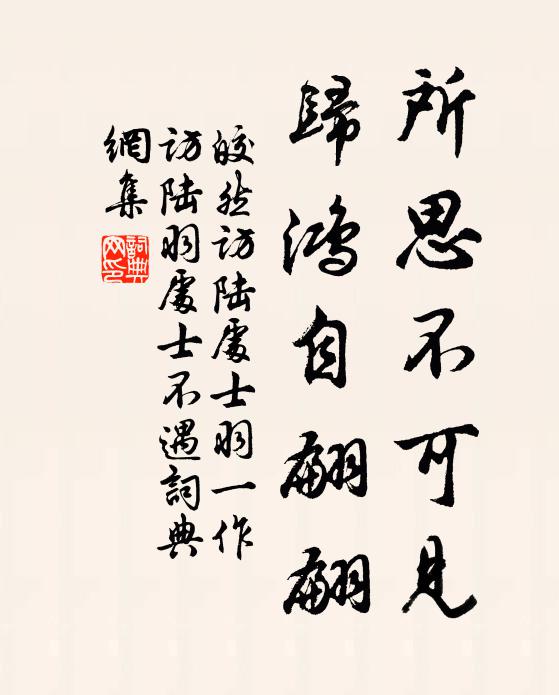 所思不可見
歸鴻自翩翩
皎然訪陆處士羽一作
訪陆羽處士不遇詞典
網集
詞典
网印